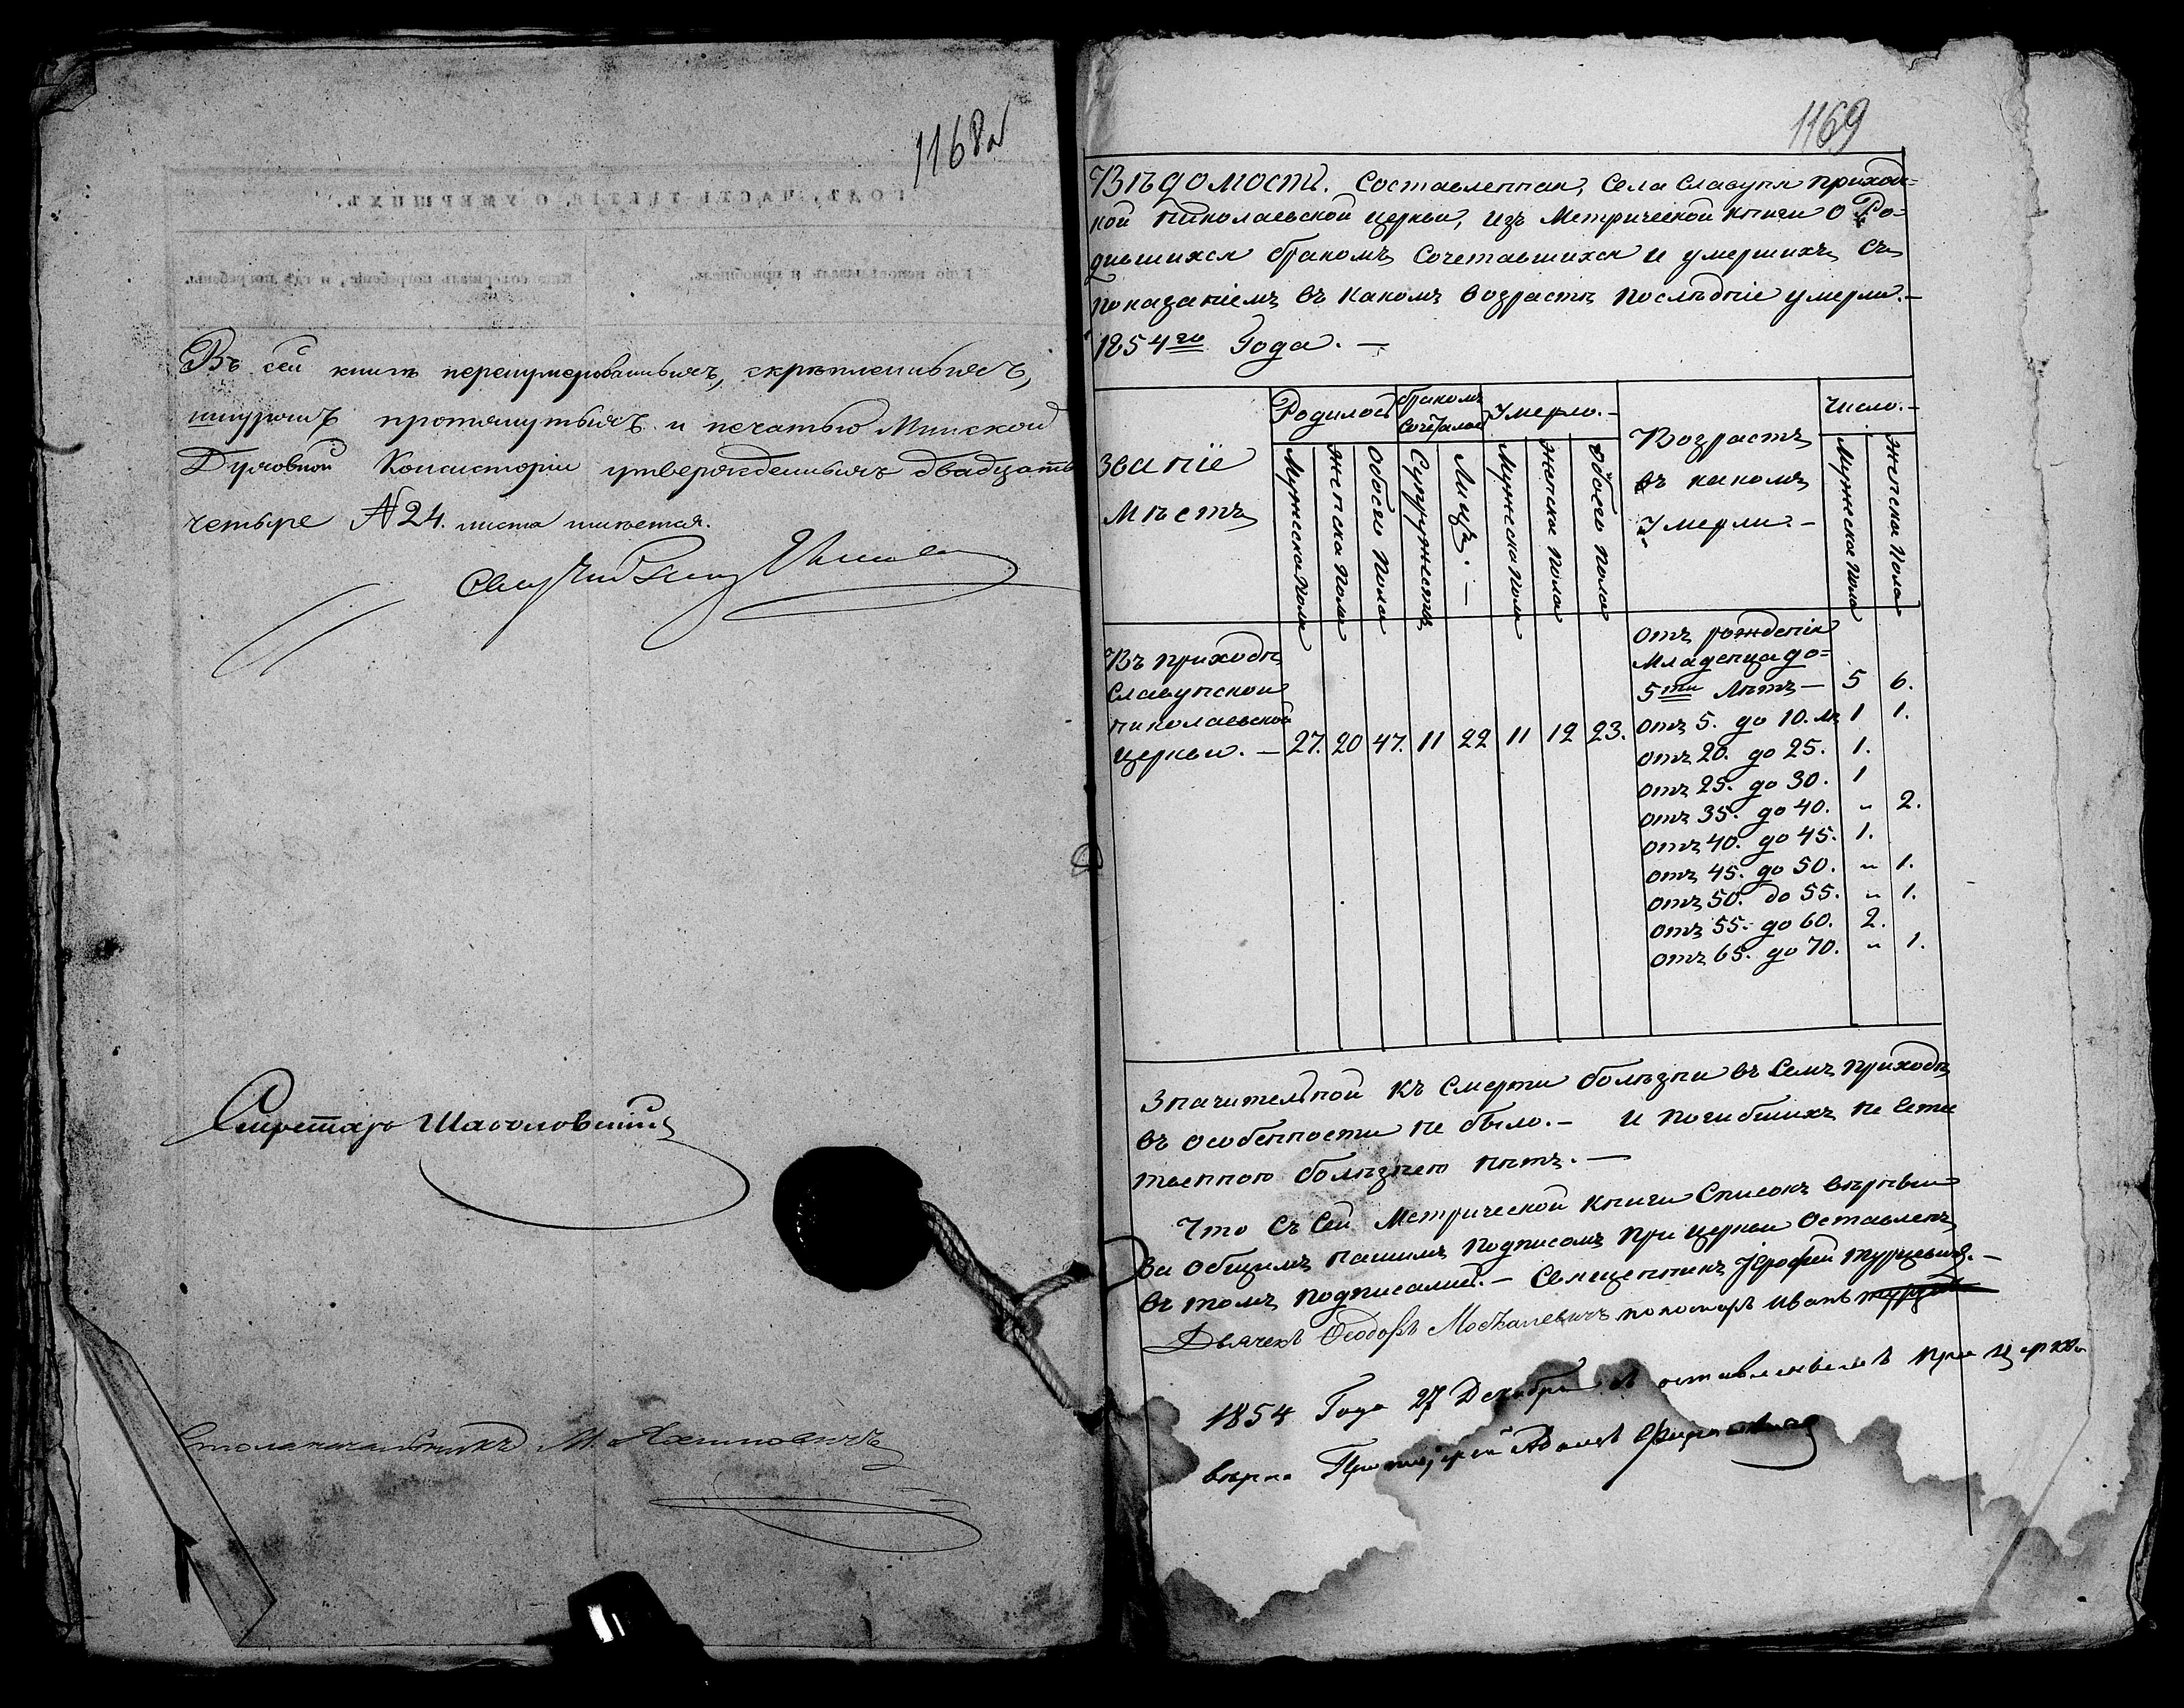 1168а
Въ сей книгѣ перенумерованныхъ, скрѣпленныхъ,
шнуромъ протянутыхъ и печатью Минской
Духовной Консисторіи утвержденныхъ двадцать
четыре №24. листа имѣется.
Секретарь
Столоначальникъ М.
1169
Вѣдомость. Составленная, Села Славупя приход=
кой Николаевской церкви, изъ Метрической книги о Ро=
дившихся бракомъ Сочетавшихся и умершихъ Съ
показаніемъ въ какомъ возрастѣ послѣдніе умерли.—
1854го Года. —
Званіе
Мѣстъ
Родилось
бракомъ
сочеталось
Умерло.—
Возрастъ
въ какомъ
Умерли.—
Число.—
Мужеска Пола
Женска Пола
Обоего Пола
Супружествъ
Лицъ. —
Мужеска Пола
Женска Пола
Обоего Пола
Мужеска Пола
Женска Пола
Въ приходѣ
Славупской
Николаевской
церкви. — 27. 20 47. 11 22 11 12 23.
Отъ рожденія
Младенца до=
5ти Лѣтъ — 5 6.
Отъ 5. до 10. лѣ 1 1.
Отъ 20. до 25. 1.
Отъ 25. до 30. 1
Отъ 35. до 40. „ 2.
Отъ 40. до 45. 1.
Отъ 45. до 50. „ 1.
Отъ 50. до 55. „ 1.
Отъ 55. до 60. 2.
Отъ 65. до 70. „ 1.
Значительной къ Смерти болѣзни въ Семъ приходѣ
въ особенности не было.— И погибшихъ не Есте
твенною болѣзнею нѣтъ. —
Что Съ Сей Метрической Книги Списокъ
За общимъ нашимъ подписомъ при церкви Оставленъ
въ томъ подписались.— Священникъ Іерофей Турцевичъ.—
Дьячекъ Ѳеодоръ пономарь Иванъ
1854 Года 27 Декабря при церкви
вѣрно Протоіерей Адамъ